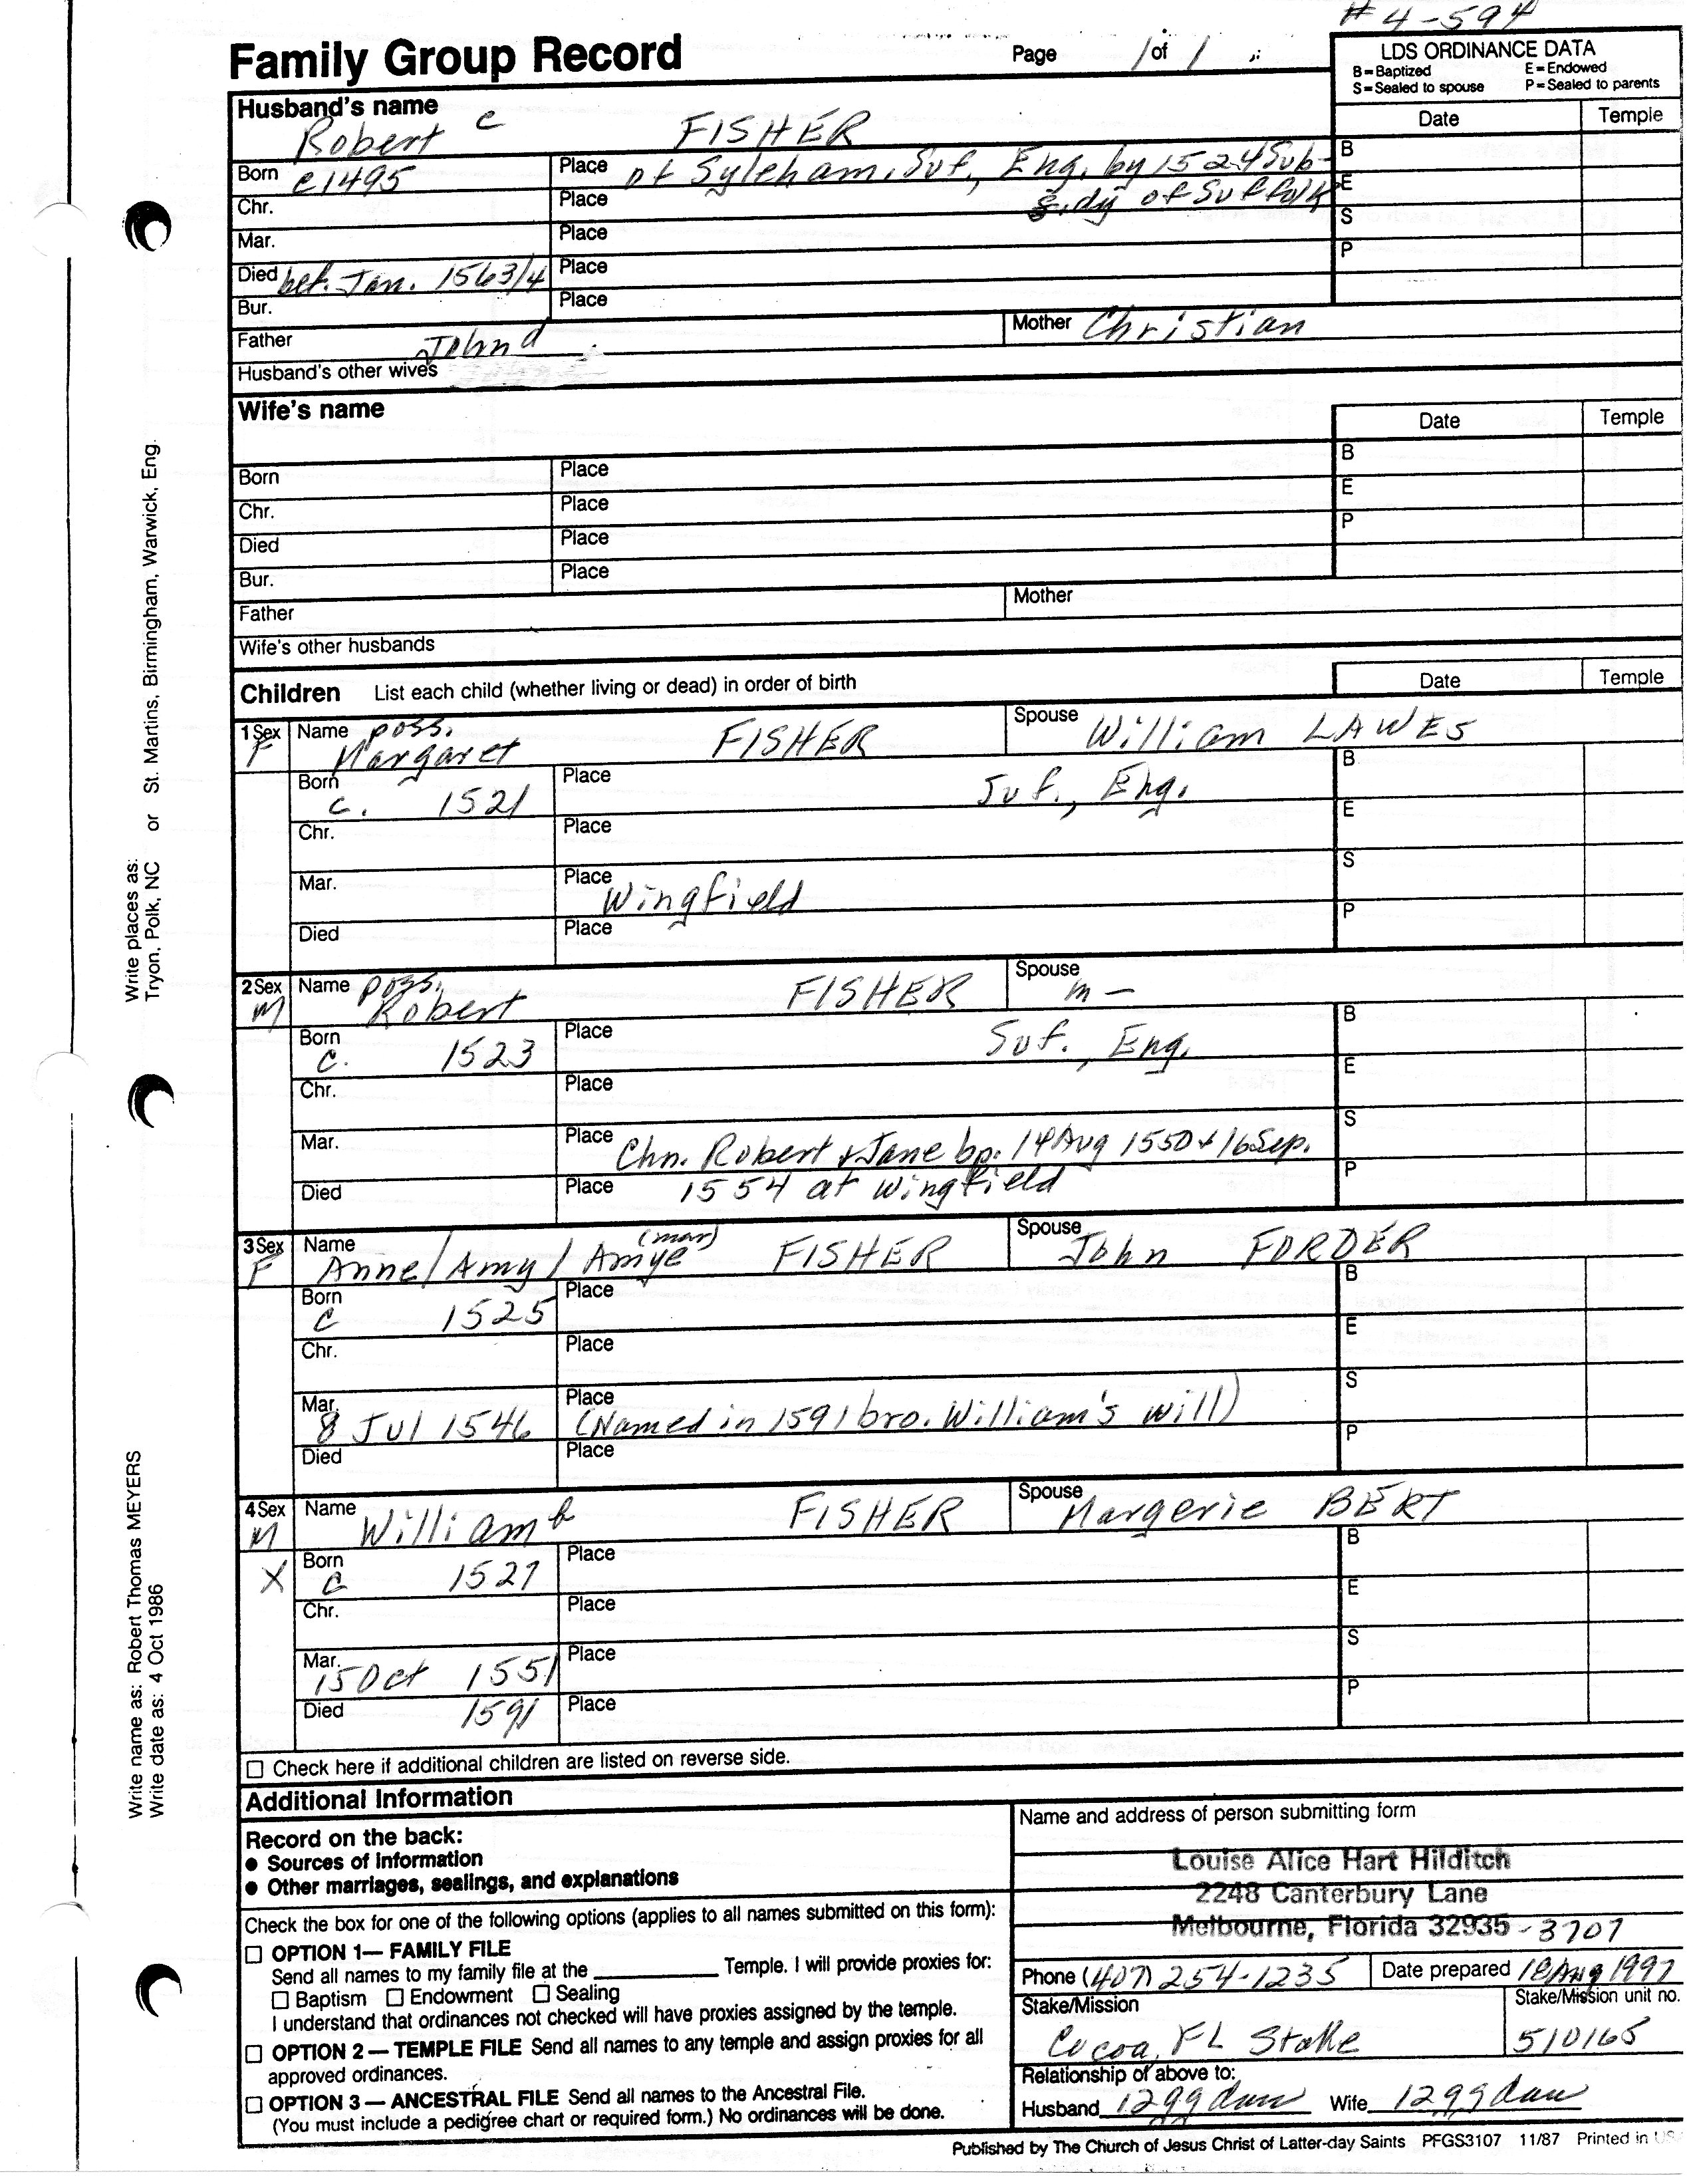 # 4-594
Family Group Record Page 1 of 1
LDS ORDINANCE DATA
B=Baptized E=Endowed
S=Sealed to spouse P=Sealed to parents
Husband's name
Robert c FISHER
Date Temple
Born c1495 Place of Syleham, Suf., Eng. by 1524 Sub- B
Chr. Place sidy of Suffolk E
Mar. Place S
Died bef. Jan. 1563/4 Place P
Bur. Place
Father John d Mother Christian
Husband's other wives
Wife's name
Date Temple
Born Place B
Chr. Place E
Died Place P
Bur. Place
Father Mother
Wife's other husbands
Children List each child (whether living or dead) in order of birth Date Temple
1 Sex F Name poss. Margaret FISHER Spouse William LAWES
Born c. 1521 Place Suf., Eng. B
Chr. Place E
Mar. Place Wingfield S
Died Place P
2 Sex M Name poss. Robert FISHER Spouse m –
Born c. 1523 Place Suf., Eng. B
Chr. Place E
Mar. Place Chn. Robert + Jane bp. 14 Aug 1550 + 16 Sep. S
Died Place 1554 at Wingfield P
3 Sex F Name Anne/Amy/Amye (mar) FISHER Spouse John FORDER
Born c 1525 Place B
Chr. Place E
Mar. 8 Jul 1546 Place (Named in 1591 bro. William's will) S
Died Place P
4 Sex M Name William b FISHER Spouse Margerie BERT
X Born c 1527 Place B
Chr. Place E
Mar. 15 Oct 1551 Place S
Died 1591 Place P
☐ Check here if additional children are listed on reverse side.
Additional Information
Record on the back:
● Sources of information
● Other marriages, sealings, and explanations
Check the box for one of the following options (applies to all names submitted on this form):
☐ OPTION 1— FAMILY FILE
Send all names to my family file at the ________ Temple. I will provide proxies for:
☐ Baptism ☐ Endowment ☐ Sealing
I understand that ordinances not checked will have proxies assigned by the temple.
☐ OPTION 2 — TEMPLE FILE Send all names to any temple and assign proxies for all
approved ordinances.
☐ OPTION 3 — ANCESTRAL FILE Send all names to the Ancestral File.
(You must include a pedigree chart or required form.) No ordinances will be done.
Name and address of person submitting form
Louise Alice Hart Hilditch
2248 Canterbury Lane
Melbourne, Florida 32935 - 3707
Phone (407) 254-1235 Date prepared 18 Aug 1997
Stake/Mission Stake/Mission unit no.
Cocoa, FL Stake 510165
Relationship of above to:
Husband 12 gg dau Wife 12 gg dau
Published by The Church of Jesus Christ of Latter-day Saints PFGS3107 11/87 Printed in US
Write places as: Tryon, Polk, NC or St. Martins, Birmingham, Warwick, Eng.
Write name as: Robert Thomas MEYERS
Write date as: 4 Oct 1986